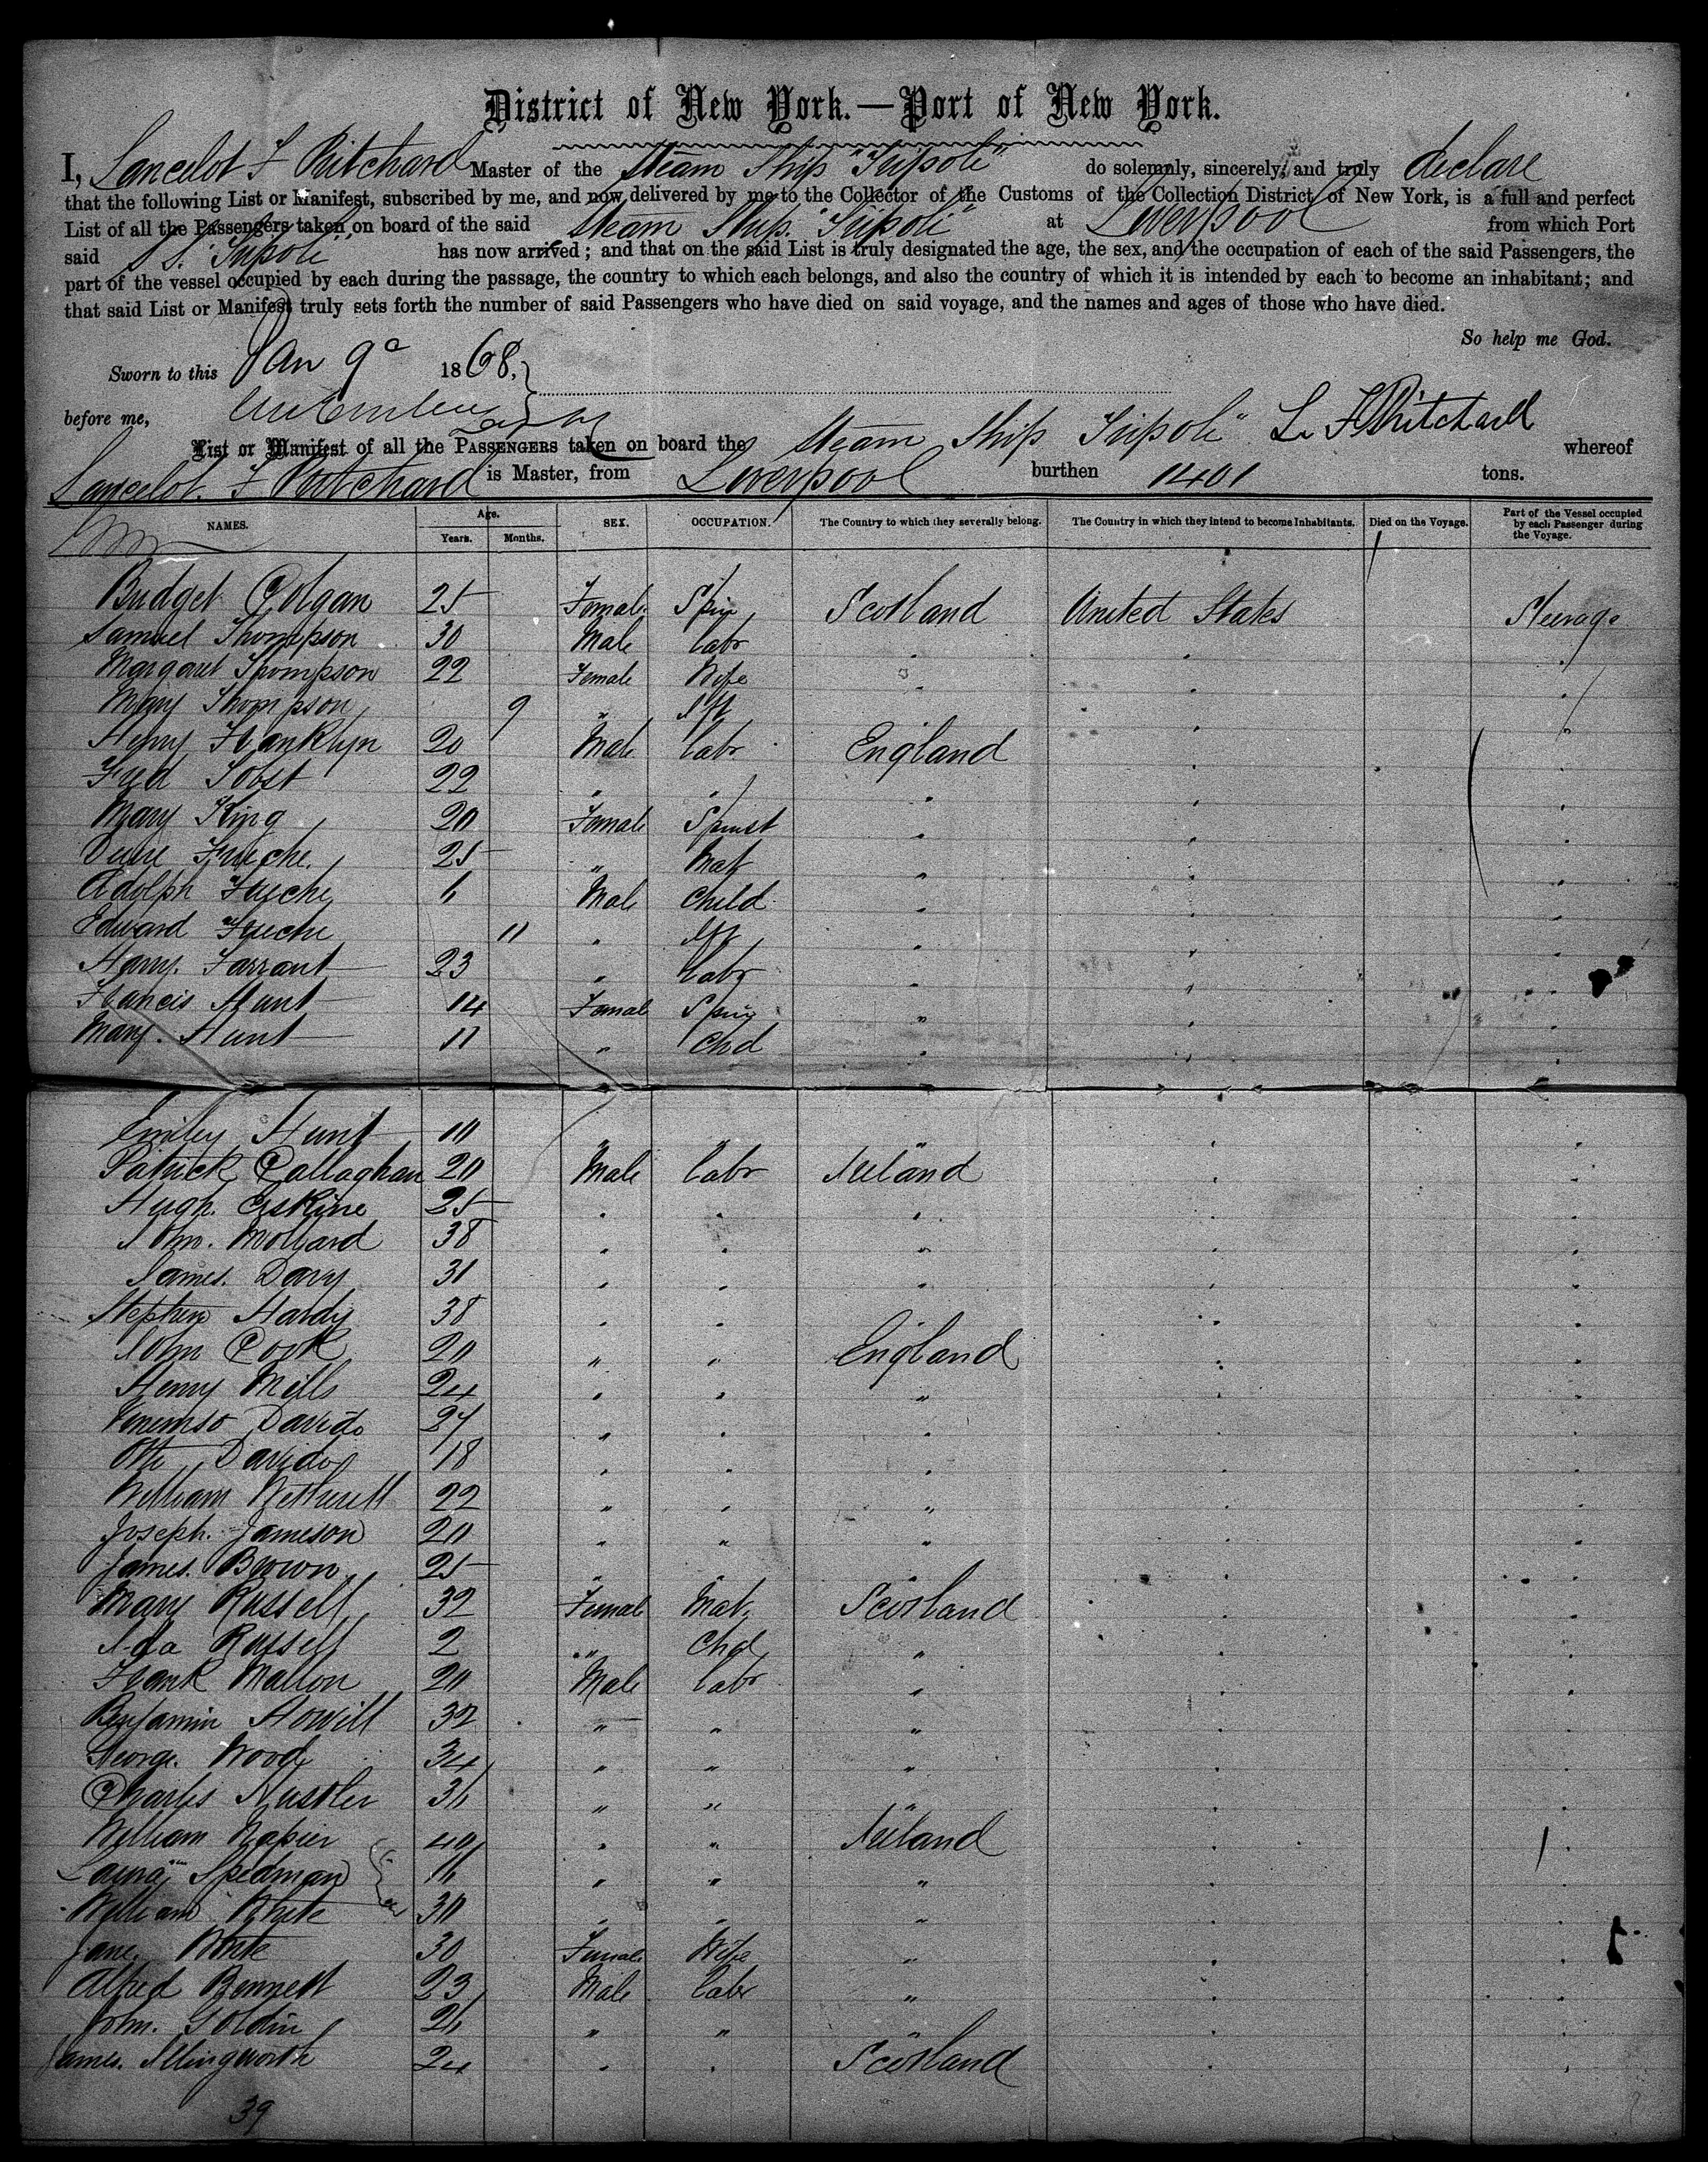 District of New York.—Port of New York.
I, Lancelot F Pritchard Master of the Steam Ship "Tripoli" do solemnly, sincerely, and truly declare
that the following List or Manifest, subscribed by me, and now delivered by me to the Collector of the Customs of the Collection District of New York, is a full and perfect
List of all the Passengers taken on board of the said Steam Ship "Tripoli" at Liverpool from which Port
said S S. "Tripoli" has now arrived; and that on the said List is truly designated the age, the sex, and the occupation of each of the said Passengers, the
part of the vessel occupied by each during the passage, the country to which each belongs, and also the country of which it is intended by each to become an inhabitant; and
that said List or Manifest truly sets forth the number of said Passengers who have died on said voyage, and the names and ages of those who have died.
So help me God.
Sworn to this Jan 9 1868,
before me, L. F Pritchard
List or Manifest of all the PASSENGERS taken on board the Steam Ship Tripoli" whereof
Lancelot F Pritchard is Master, from Liverpool burthen 1401 tons.
NAMES. Age. Years. Months. SEX. OCCUPATION. The Country to which they severally belong. The Country in which they intend to become Inhabitants. Died on the Voyage. Part of the Vessel occupied by each Passenger during the Voyage.
Bridget Colgan 25 Female Spin Scotland United States Steerage
Samuel Thompson 30 Male labr " " "
Margaret Thompson 22 Female Wife " " "
Mary Thompson 9 " Inft " " "
Henry Franklyn 20 Male labr England " "
Fred Tobst 22 " " " " "
Mary King 20 Female Spinst " " "
25 " Mat " " "
Adolph 6 Male Child " " "
Edward 11 " Inft " " "
Harry Farrant 23 " labr " " "
Francis Hunt 14 Female Spin " " "
Mary Hunt 11 " Chd " " "
Emiley Hunt 10 " " " " "
Patrick Callaghan 20 Male labr Ireland " "
Hugh Erskine 25 " " " " "
John Mollard 38 " " " " "
James Davy 31 " " " " "
Stephen Hardy 38 " " " " "
John Cook 20 " " England " "
Henry Mills 24 " " " " "
Davids 27 " " " " "
Otto Davids 18 " " " " "
William Wetherell 22 " " " " "
Joseph Jameson 20 " " " " "
James Brown 25 " " " " "
Mary Russell 32 Female Mat Scotland " "
Ada Russell 2 " Chd " " "
Frank Mallon 20 Male labr " " "
Benjamin Howitt 32 " " " " "
George Wood 34 " " " " "
Charles Hustler 36 " " " " "
William Napier 40 " " Ireland " "
Laura Spedman 16 " " " " "
William White 30 " " " " "
Jane White 30 Female Wife " " "
Alfred Bennett 23 Male labr " " "
John Goldin 26 " " " " "
James Illingworth 24 " " Scotland " "
39